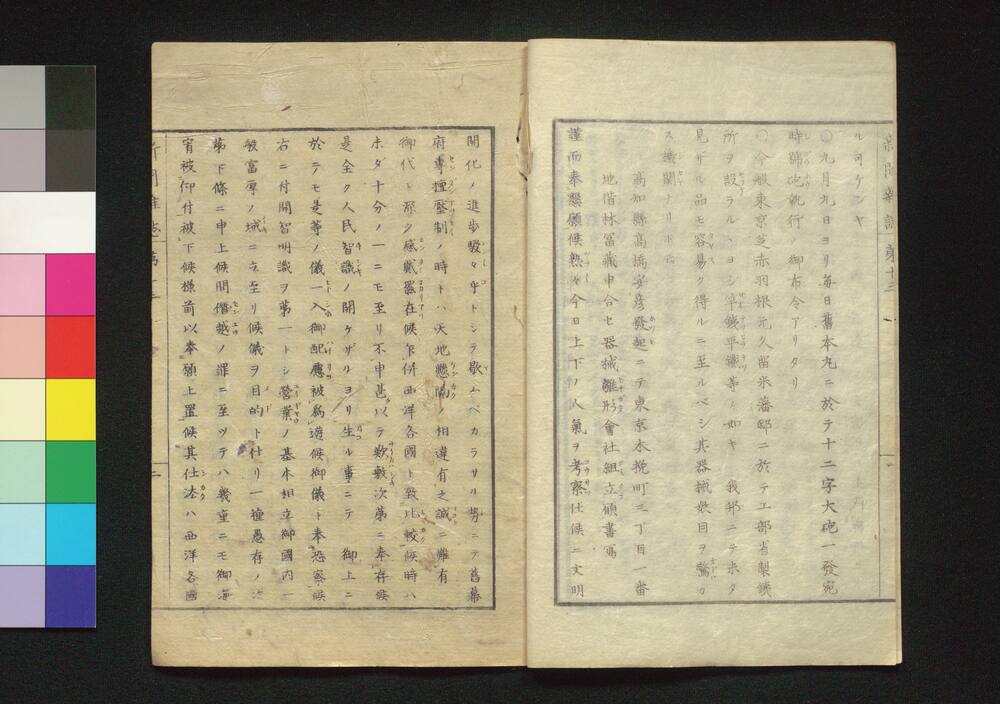 新聞雜誌 第十三
ル可ケンヤ
〇九月九日ヨリ每日舊本丸ニ於テ十二字大砲一發宛
時號砲執行 御布令アリタリ
〇今般東京芝赤羽根元久留米藩邸ニ於テ工部省製鐵
所ヲ設ラルヽヨシ
見ザル品モ容易ク得ルニ至ルベシ其器械
ス機關ナリト云
高知縣高橋安彥發起ニテ東京木挽町三丁目一番
地借林冨藏申合セ器械雛形會社組立願書寫
謹而奉懇願候熟々今日上下ノ人氣ヲ考察仕候ニ文明
開化ノ進歩駸々乎トシテ歇ムベカラサル勢ニテ舊幕
府專擅壓制ノ時トハ天地懸隔ノ相違有之誠ニ難有
御代ト深ク感戴罷在候乍併西洋各國ト致比較候時ハ
未ダ十分ノ一ニモ至リ不申甚以テ歎敷次第ニ奉存候
是全ク人民智識ノ開ケザルヨリ生ル事ニテ 御上ニ
於テモ是等ノ儀一入御配慮被爲遊候御儀ト奉恐察候
右ニ付開智明識ヲ第一トシ營業ノ基本相立御國內一
般富厚ノ域ニ立至リ候儀ヲ目的ト仕リ一種愚存ノ
第下條ニ申上候間僭越ノ罪ニ至ツテハ幾重ニモ御海
宥被仰付被下候樣前以奉願上置候其仕法ハ西洋各國
新聞雜誌 第十三